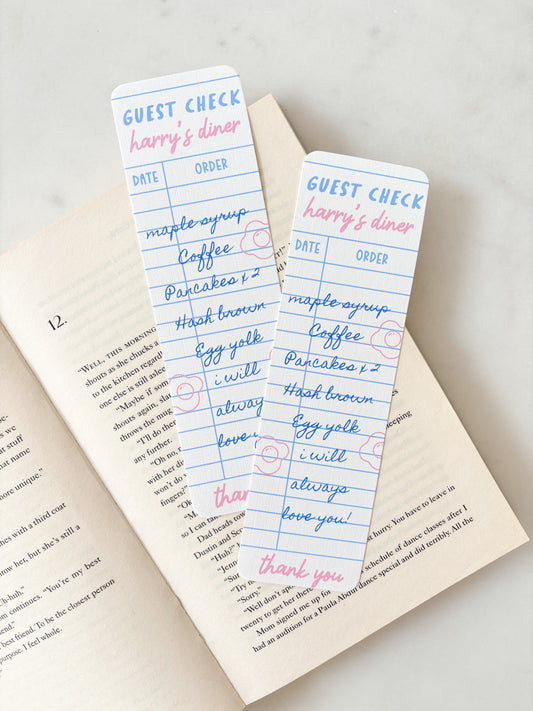 GUEST CHECK
harry's diner
DATE ORDER
maple syrup
Coffee
Pancakes x 2
Hash brown
Egg yolk
i will
always
love
thank
GUEST CHECK
harry's diner
DATE ORDER
maple syrup
Coffee
Pancakes x 2
Hash brown
Egg yolk
i will
always
love you!
thank you
12.
"WELL, THIS MORNING
shouts as she chucks a
to the kitchen regard
one else is still asle
"Maybe if som
shouts again, sla
throws the mug
"I'll do the
any further.
"Oh no,
with her di
won't do
fingers!"
so I can ta
Dad heads tow
Dustin and So
"Huh?"
"Jenn
"Sur
"Try
"Sorry."
"Well don't ape
twenty to get her
Mom signed me up for
had an audition for a Paula Abour dance special and did terribly. All the
schedule of dance classes after I
hurry. You to leave in
eeping
s we
at stuff
hat name
more unique."
ches with a third coat
row her, but she's still a
h-huh."
om continues. "You're my best
end."
best friend. To be the closest person
purpose. I feel whole.